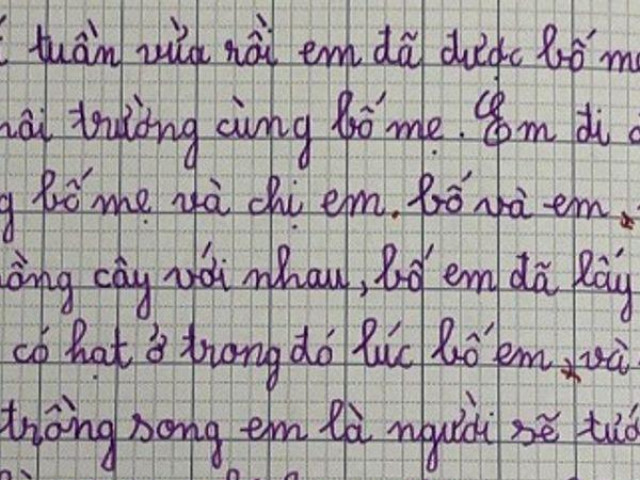 tuần vừa rồi em đã được bố mẹ
trường cùng bố mẹ. Em đi
bố mẹ và chị em. bố và em
cây với nhau, bố em đã lấy
có hạt ở trong đó lúc bố em, và
trồng song em là người sẽ